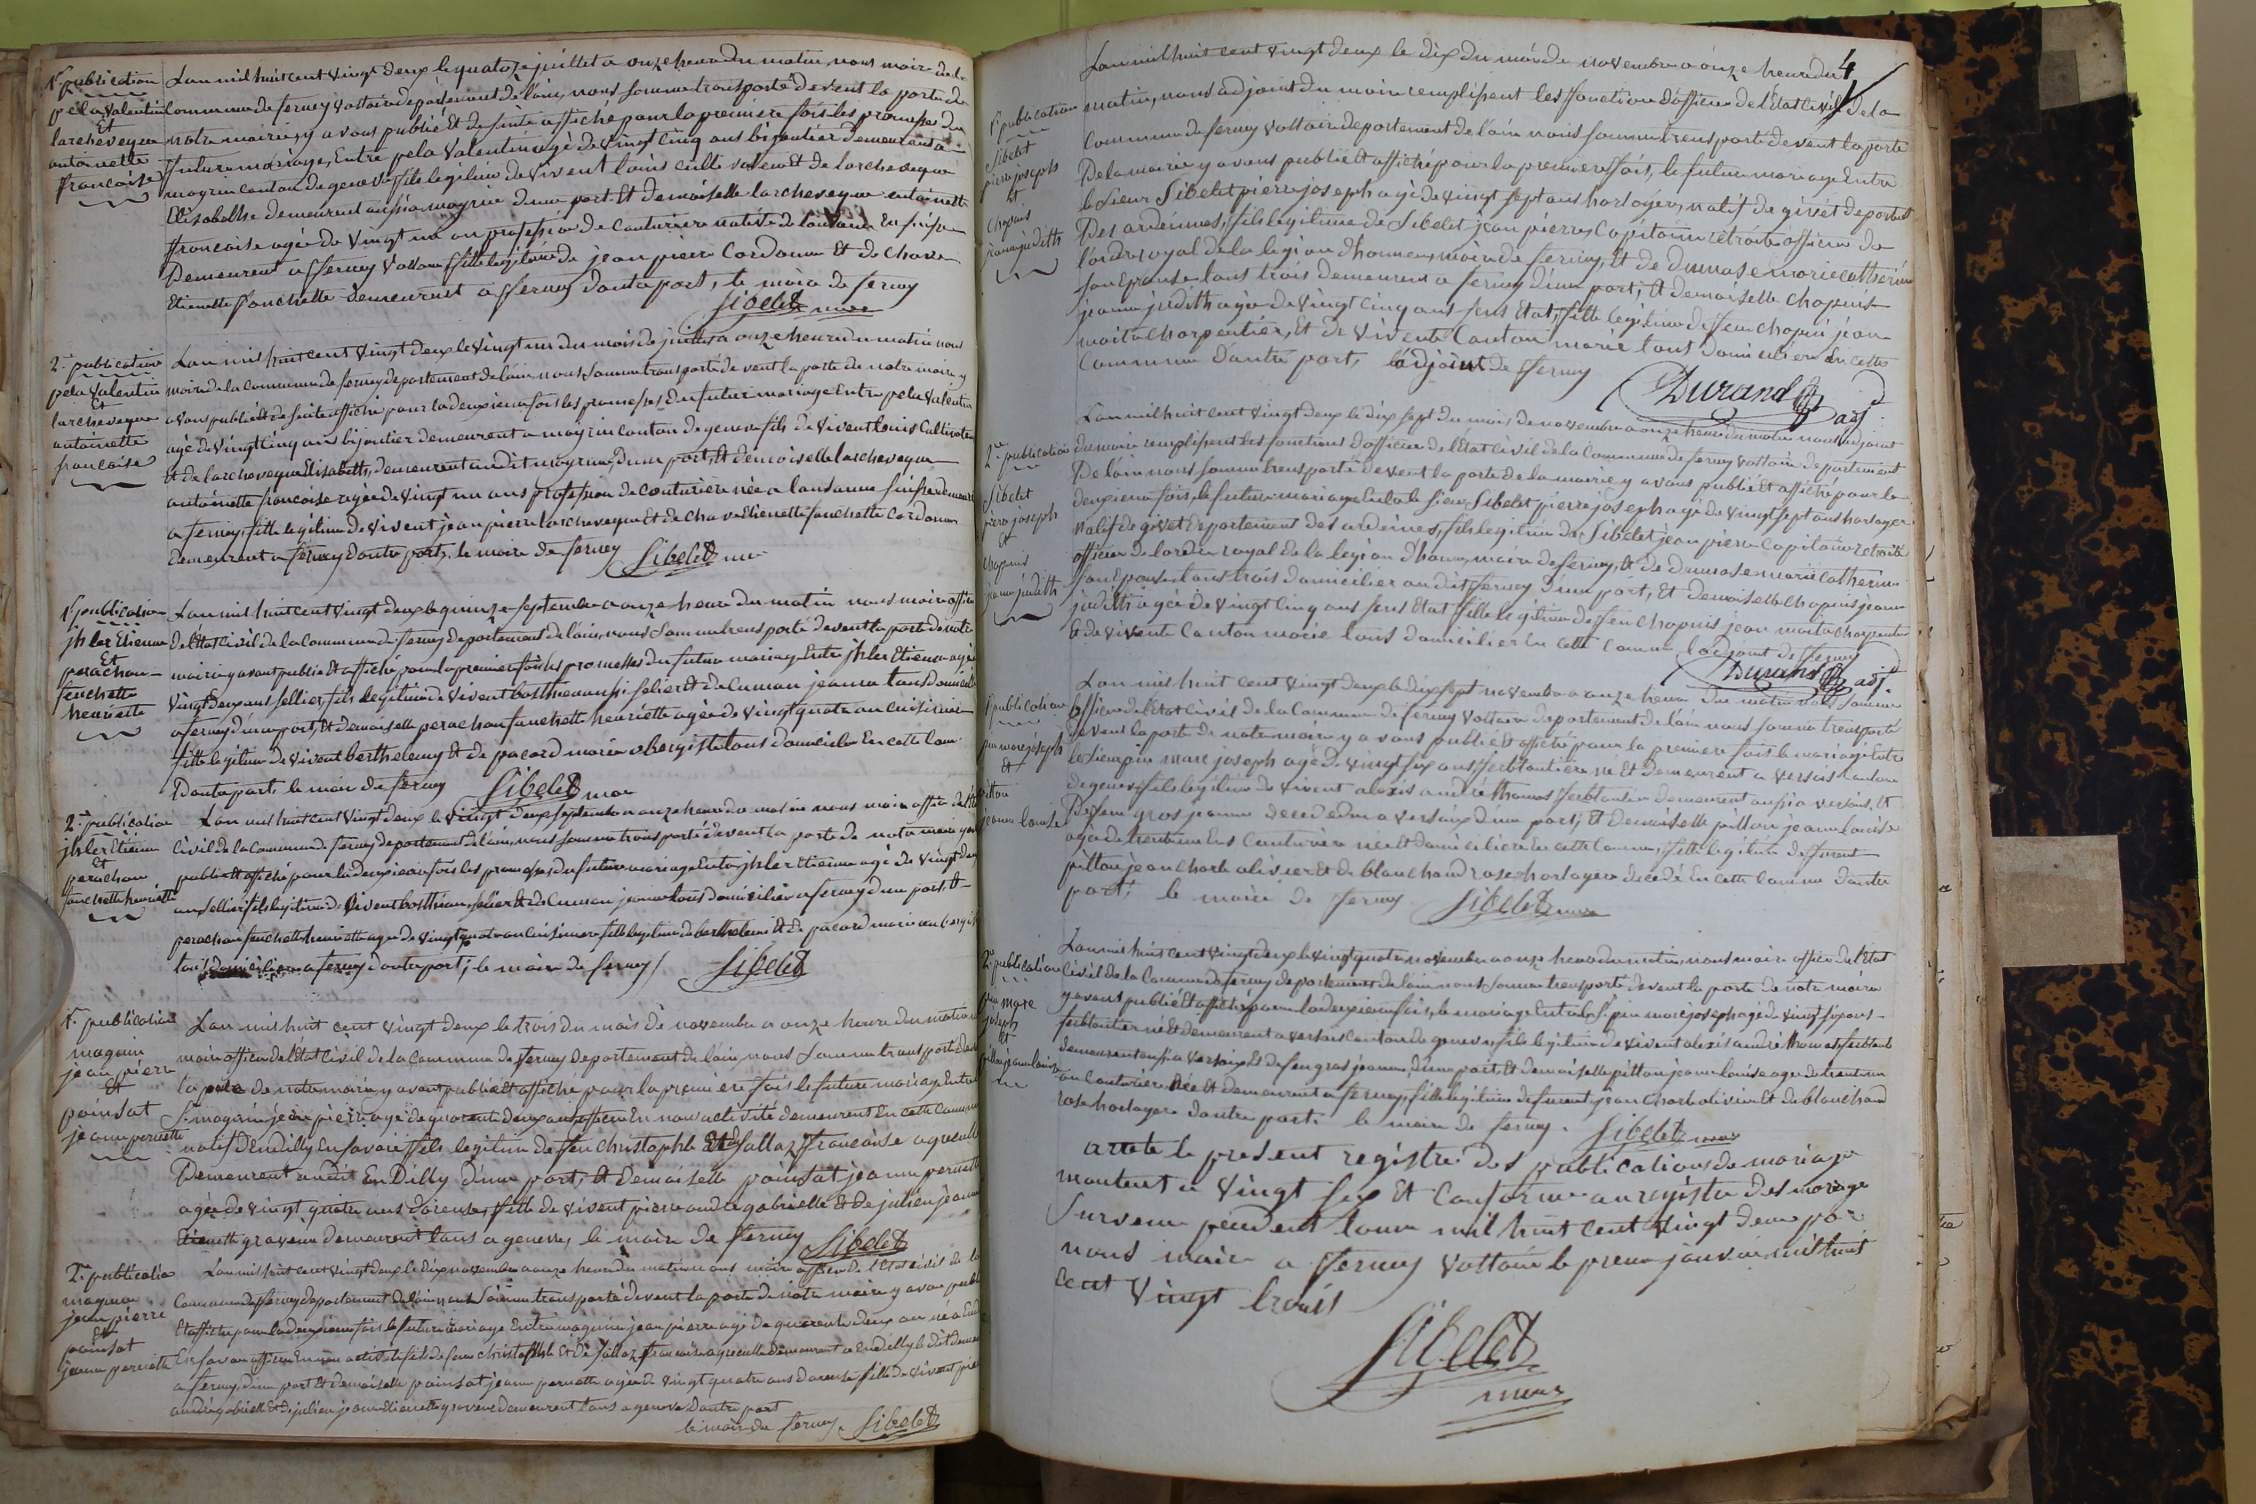 1re publication
pela Valentin
Et
larcheveque
antoinette
francoise
Lan mil huit cent vingt deux le quatorze juillet a onze heure du matin nous maire de la
Commune de ferney voltaire departement de l'ain, nous somme transporté devent la porte de
notre mairie, y avons publié Et de suite affiché pour la premiere fois les promesse du
future mariage, Entre pela Valentin agé de vingt cinq ans bijoutier demeurent a
mayrin canton de geneve fils legitime de vivent louis et de larcheveque
Elisabethe demeurent aussi a mayrin d'une part Et demoiselle larcheveque antoinette
francoise agée de vingt un an profession de Couturiere native de lausanne En suisse
Demeurent a fferney voltaire ffille legitime de jean pierre Cordonnier Et de Chave
Etienette fanchette demeurent a fferney dautre part, le maire de ferney
Sibelet maire
2e publication
pela Valentin
Et
larcheveque
antoinette
francoise
Lan mil huit cent vingt deux le vingt un du mois de juillet a onze heure du matin nous
maire de la Commune de ferney departement de lain nous somme transporté devent la porte de notre mairie y
avons publié Et de suite affiché pour la deuxieme fois les promesses du future mariage Entre pela Valentin
agé de vingt cinq ans bijoutier demeurent a mayrin canton de geneve fils de vivent louis Cultivateur
Et de larcheveque Elisabeth, demeurent au dit mayrin, d'une part, Et demoiselle larcheveque
antoinette francoise agée de vingt un ans profession de Couturiere née a lausanne suisse demeurent
a ferney, fille legitime de vivent jean pierre larcheveque Et de Chave Etienette fanchette Cordonnier
demeurent a ferney d'autre part, le maire de ferney Sibelet
1re publication
jhler Etienne
Et
perachon
fanchette
henriette
Lan mil huit cent vingt deux le quinze septembre a onze heure du matin nous maire officier
de l'Etat Civil de la Commune de ferney departement de l'ain, nous somme transporté devent la porte de notre
mairie y avons publié Et affiché pour la premiere fois les promesses du future mariage Entre jhler Etienne agé
vingt deux ans sellier, fils legitime de vivent aussi selier Et de Cuman jeanne tous domicilié
a ferney d'une part, Et demoiselle perachon fanchette henriette agée de vingt quatre an cuisiniere
fille legitime de vivent berthelemy Et de pacard marie obergiste tous domicilier En cette Com.
D'autre part le maire de ferney Sibelet maire
2e publication
jhler Etienne
Et
perachon
fanchette henriette
Lan mil huit cent vingt deux le vingt deux septembre a onze heure du matin nous maire officier de l'Etat
Civil de la Commune de ferney departement de l'ain, nous somme transporté devent la porte de notre mairie y avons
publié Et affiché pour la deuxieme fois les promesses du future mariage Entre jhler Etienne agé de vingt deux
ans sellier fils legitime de vivent selier Et de Cuman jeanne tous domicilier a ferney d'une part Et
perachon fanchette henriette agée de vingt quatre an Cuisiniere fille legitime de berthelemi Et de pacard marie aubergiste
tous domicilier a ferney d'autre part, le maire de ferney Sibelet
1re publication
magnin
jean pierre
Et
poinsat
jeanne pernette
Lan mil huit cent vingt deux le trois du mois de novembre a onze heure du matin
maire officier de l'Etat Civil de la Commune de ferney departement de l'ain, nous somme transporté devent
la porte de notre mairie y avons publié Et affiché pour la premiere fois le future mariage Entre
Sr magnin jean pierre agé de quarente deux ans officier En non activité demeurent En cette Commune
natif D'Endilly En savoie ffils legitime de feu Christophle Et de Jallaz ffrancoise agreculte
Demeurent au dit Endilly d'une part, Et demoiselle poinsat jeanne pernette
agée de vingt quatre ans doreuse, fille de vivent pierre andré gabrielle Et de julien jeanne
Etienette graveur demeurent tous a geneve, le maire de fferney Sibelet
2e publication
magnin
jean pierre
Et
poinsat
jeanne pernette
Lan mil huit cent vingt deux le dix novembre a onze heure du matin nous maire officier de l'Etat civil de la
Commune de fferney departement de l'ain nous somme transporté devent la porte de notre mairie y avons publié
Et affiché pour la deuxieme fois le future mariage Entre magnin jean pierre agé de quarente deux an né a Endilly
En savoie officier En non activité fils de feu Christophle Et de Jallaz francoise agreculte Demeurent a Endilly le dit demeurent
a ferney, d'une part Et demoiselle poinsat jeanne pernette agée de vingt quatre ans doreuse fille de vivent pierre
andré gabrielle Et de julien jeanne Etienette graveur demeurent tous a geneve Dautre part
le maire de ferney. Sibelet
4
1re publication
Sibelet
pierre joseph
Et
Chapuis
jeanne judith
Lan mil huit cent vingt deux le dix du mois de novembre a onze heure du
matin, nous adjoint du maire remplissent les ffonction d'officier de l'Etat Civil de la
Commune de ferney voltaire departement de l'ain nous somme transporté devent la porte
De la mairie y avons publié Et affiché pour la premiere ffois, le future mariage Entre
le sieur Sibelet pierre joseph agé de vingt sept ans horloger, natif de givet departement
Des ardennes, ffils legitime de Sibelet jean pierre, Capitaine retraité officier de
l'ordre royal de la legion d'honneur, maire de ferney, Et de Dumas marie catherine
son Epouse tous trois demeurent a ferney d'une part, Et demoiselle Chapuis
jeanne judith agée de vingt cinq ans sens Etat, ffille legitime de ffeu chapuis jean
maitre charpentier, Et de vivente Canton marie tous domicilier En cette
Commune D'autre part, l'adjoint de fferney
Durand adj.
2e publication
Sibelet
pierre joseph
Et
Chapuis
jeanne judith
Lan mil huit cent vingt deux le dix sept du mois de novembre a onze heure du matin nous adjoint
du maire remplissent les fonctions d'officier de l'Etat Civil de la Commune de ferney voltaire departement
De lain nous somme transporté devent la porte de la mairie y avons publié Et affiché pour la
deuxieme fois, le future mariage Entre le sieur Sibelet pierre joseph agé de vingt sept ans horloger
Natif de givet departement des ardennes, fils legitime de Sibelet jean pierre Capitaine retraité
officier de lordre royal de la legion d'honneur, maire de ferney, Et de Dumas marie Catherine
son Epouse tous trois domicilier au dit fferney d'une part, Et demoiselle Chapuis jeanne
judith agée de vingt cinq ans sens Etat ffille legitime de ffeu Chapuis jean maitre charpentier
Et de vivente Canton marie tous domicilier En cette Commune l'adjoint de fferney
Durand adj.
1re publication
pin marc joseph
Et
pitton
jeanne louise
Lan mil huit cent vingt deux le dix sept novembre a onze heure du matin nous somme
Officier de l'Etat Civil de la Commune de fferney voltaire departement de lain nous somme transporté
devent la porte de notre mairie y avons publié Et affiché pour la premiere fois le mariage Entre
le sieur pin marc joseph agé de vingt six ans fferblantier né Et demeurent a versois canton
de geneve fils legitime de vivent alexis andré thomas fferblantier demeurent aussi a versois, Et
De feu gros jeanne decedée a versoix d'une part, Et demoiselle pitton jeanne louise
agée de trente un Ens Couturiere née Et domiciliere En cette Commune, ffille legitime de ffeu
pitton jean Charle olivier Et de blanchand rose horlogere decedé En cette Commune d'autre
part, le maire de fferney Sibelet maire
2e publication
pin marc
joseph
Et
pitton jeanne louise
Lan mil huit cent vingt deux le vingt quatre novembre a onze heure du matin, nous maire officier de l'Etat
Civil de la Commune de ferney departement de lain nous somme transporté devent la porte de notre mairie
y avons publié Et affiché pour la deuxieme fois, le mariage Entre le Sr. pin marc joseph agé de vingt six ans
ferblantier né Et demeurent a versois Canton de geneve, fils legitime de vivent alexis andré thomas ferblantier
demeurent aussi a versoix, Et de feu gros jeanne, d'une part, Et demoiselle pitton jeanne louise agée de trente un
an Couturiere née Et demeurent a ferney, fille legitime de jean Charle olivier Et de blanchand
rose horlogere d'autre part. le maire de ferney. Sibelet maire
arrete le present registre des publications de mariage
montent a vingt six Et Conforme au registre des mariage
Survenu pendent l'anné mil huit cent vingt deux par
nous maire a fferney voltaire le premier janvier mil huit
cent vingt trois
Sibelet
maire